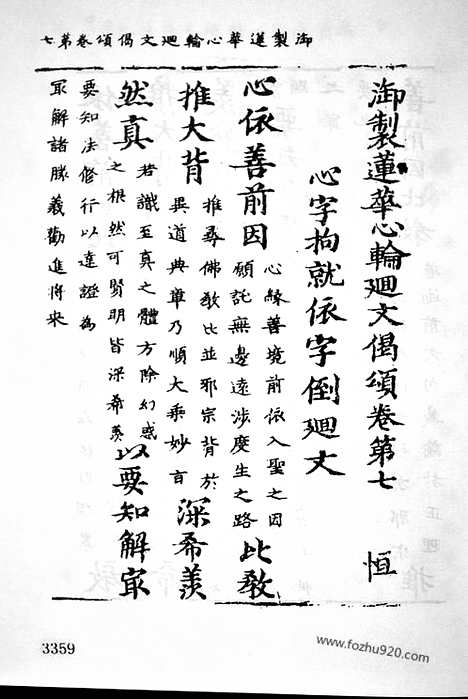 御製蓮華心輪廻文偈頌卷第七
御製蓮華心輪廻文偈頌卷第七 恒
心字拘就依字倒廻文
心依善前因 心緣善境前依入聖之因
願託無邊遠涉度生之路 比教
推大背 推尋佛教比並邪宗背於
異道典章乃順大乘妙言 深希羨
然真 若識至真之體方除幻惑
之根然可賢明皆深希羨 以要知解㝡
要知法修行以達證為
㝡解諸勝義勸進將來
3359
www.fozhu920.com